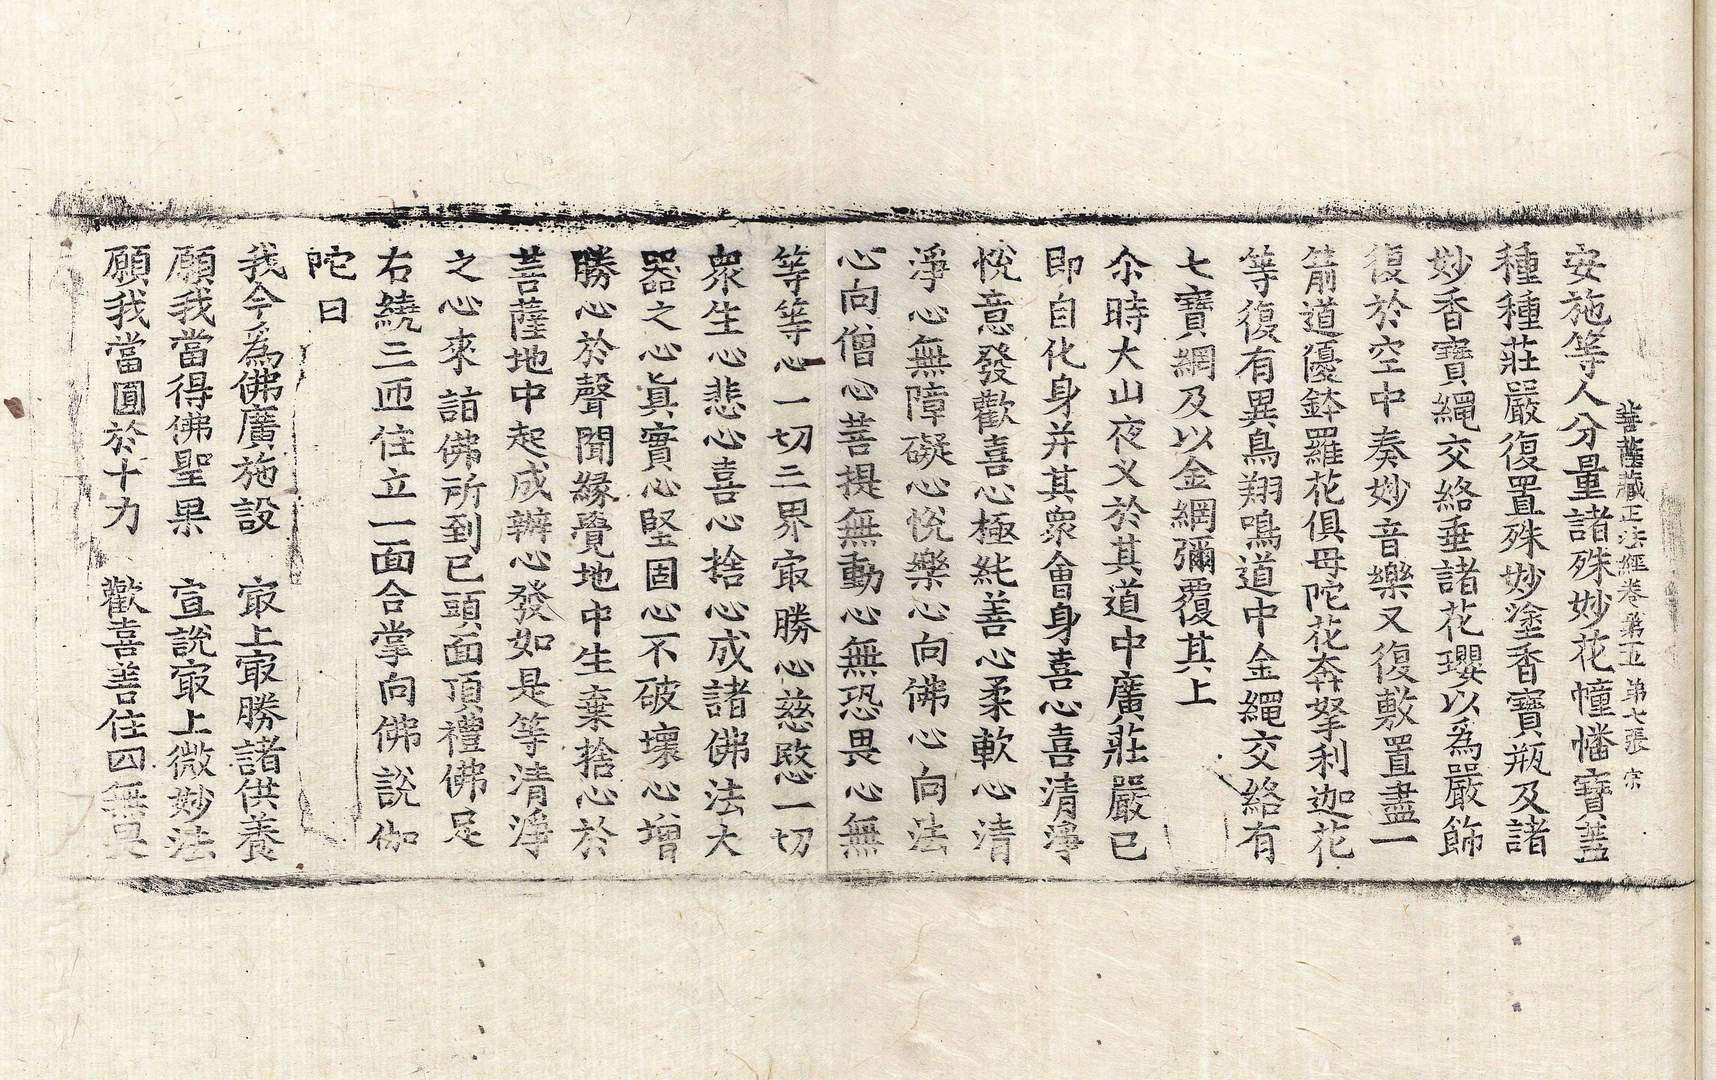 菩薩藏正法經卷第五 第七張 宗
安施等人分量諸殊妙花幢幡寶蓋
種種莊嚴復置殊妙塗香寶瓶及諸
妙香寶繩交絡垂諸花瓔以爲嚴飾
復於空中奏妙音樂又復敷置盡一
箭道優鉢羅花俱母陀花奔拏利迦花
等復有異鳥翔鳴道中金繩交絡有
七寶網及以金網彌覆其上
尒時大山夜叉於其道中廣莊嚴已
即自化身并其衆會身喜心喜清淨
悅意發歡喜心極純善心柔軟心清
淨心無障礙心悅樂心向佛心向法
心向僧心菩提無動心無恐畏心無
等等心一切三界㝡勝心慈愍一切
衆生心悲心喜心捨心成諸佛法大
器之心眞實心堅固心不破壞心增
勝心於聲聞緣覺地中生棄捨心於
菩薩地中起成辦心發如是等清淨
之心來詣佛所到已頭面頂禮佛足
右繞三匝住立一面合掌向佛說伽
陀曰
我今爲佛廣施設 㝡上㝡勝諸供養
願我當得佛聖果 宣說㝡上微妙法
願我當圓於十力 歡喜善住四無畏